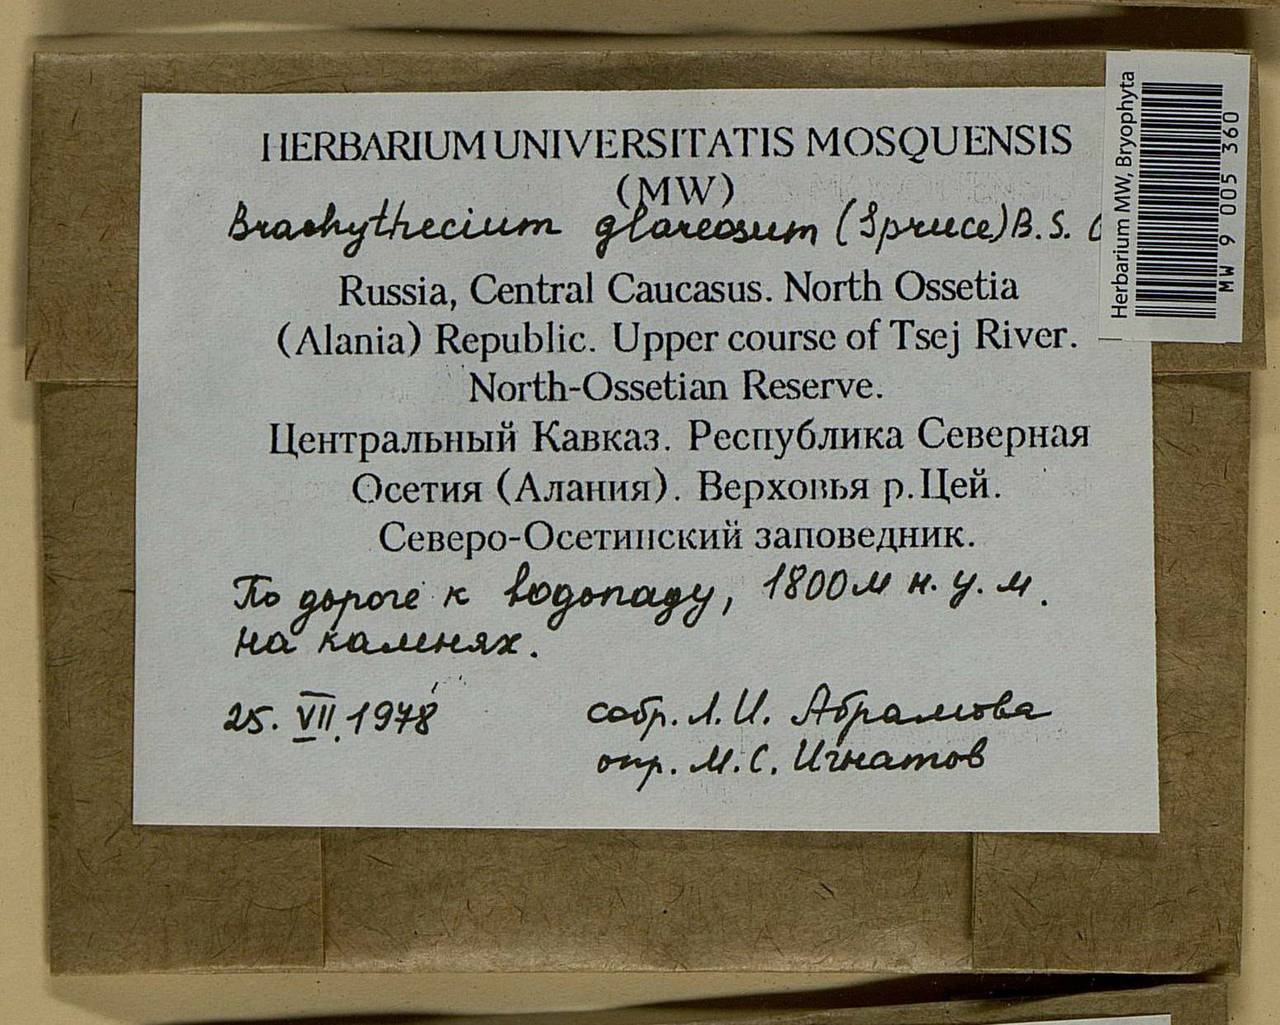 HERBARIUM UNIVERSITATIS MOSQUENSIS
(MW)
Brachythecium glareosum (Spruce) B. S.
Russia, Central Caucasus. North Ossetia
(Alania) Republic. Upper course of Tsej River.
North-Ossetian Reserve.
Центральный Кавказ. Республика Северная
Осетия (Алания). Верховья р. Цей.
Северо-Осетинский заповедник.
По дороге к водопаду, 1800 м н. у. м.
на камнях.
25. VII. 1978
собр. Л. И. Абрамова
опр. М. С. Игнатов
Herbarium MW, Bryophyta
MW 9 005 360